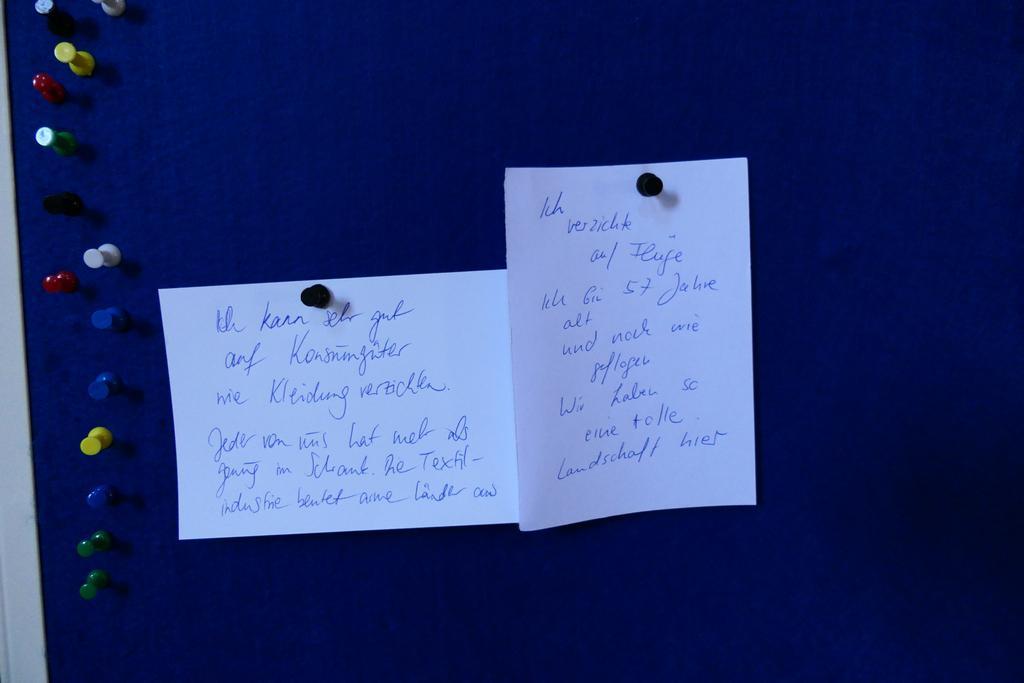 Ich kann sehr gut
auf Konsumgüter
wie Kleidung verzichten.
Jeder von uns hat mehr als
genug im Schrank. Die Textil-
industrie beutet arme Länder aus
Ich
verzichte
auf Flüge
Ich bin 57 Jahre
alt
und noch nie
geflogen
Wir haben so
eine tolle
Landschaft hier